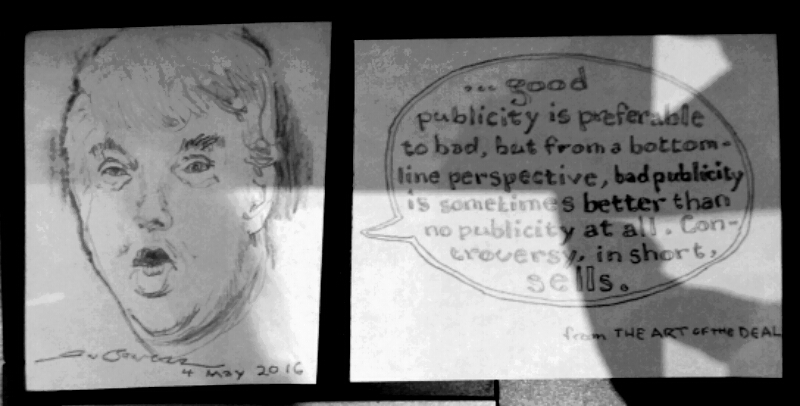 4 May 2016
... good
publicity is preferable
to bad, but from a bottom-
line perspective, bad publicity
is sometimes better than
no publicity at all. Con-
troversy, in short,
sells.
from THE ART OF THE DEAL